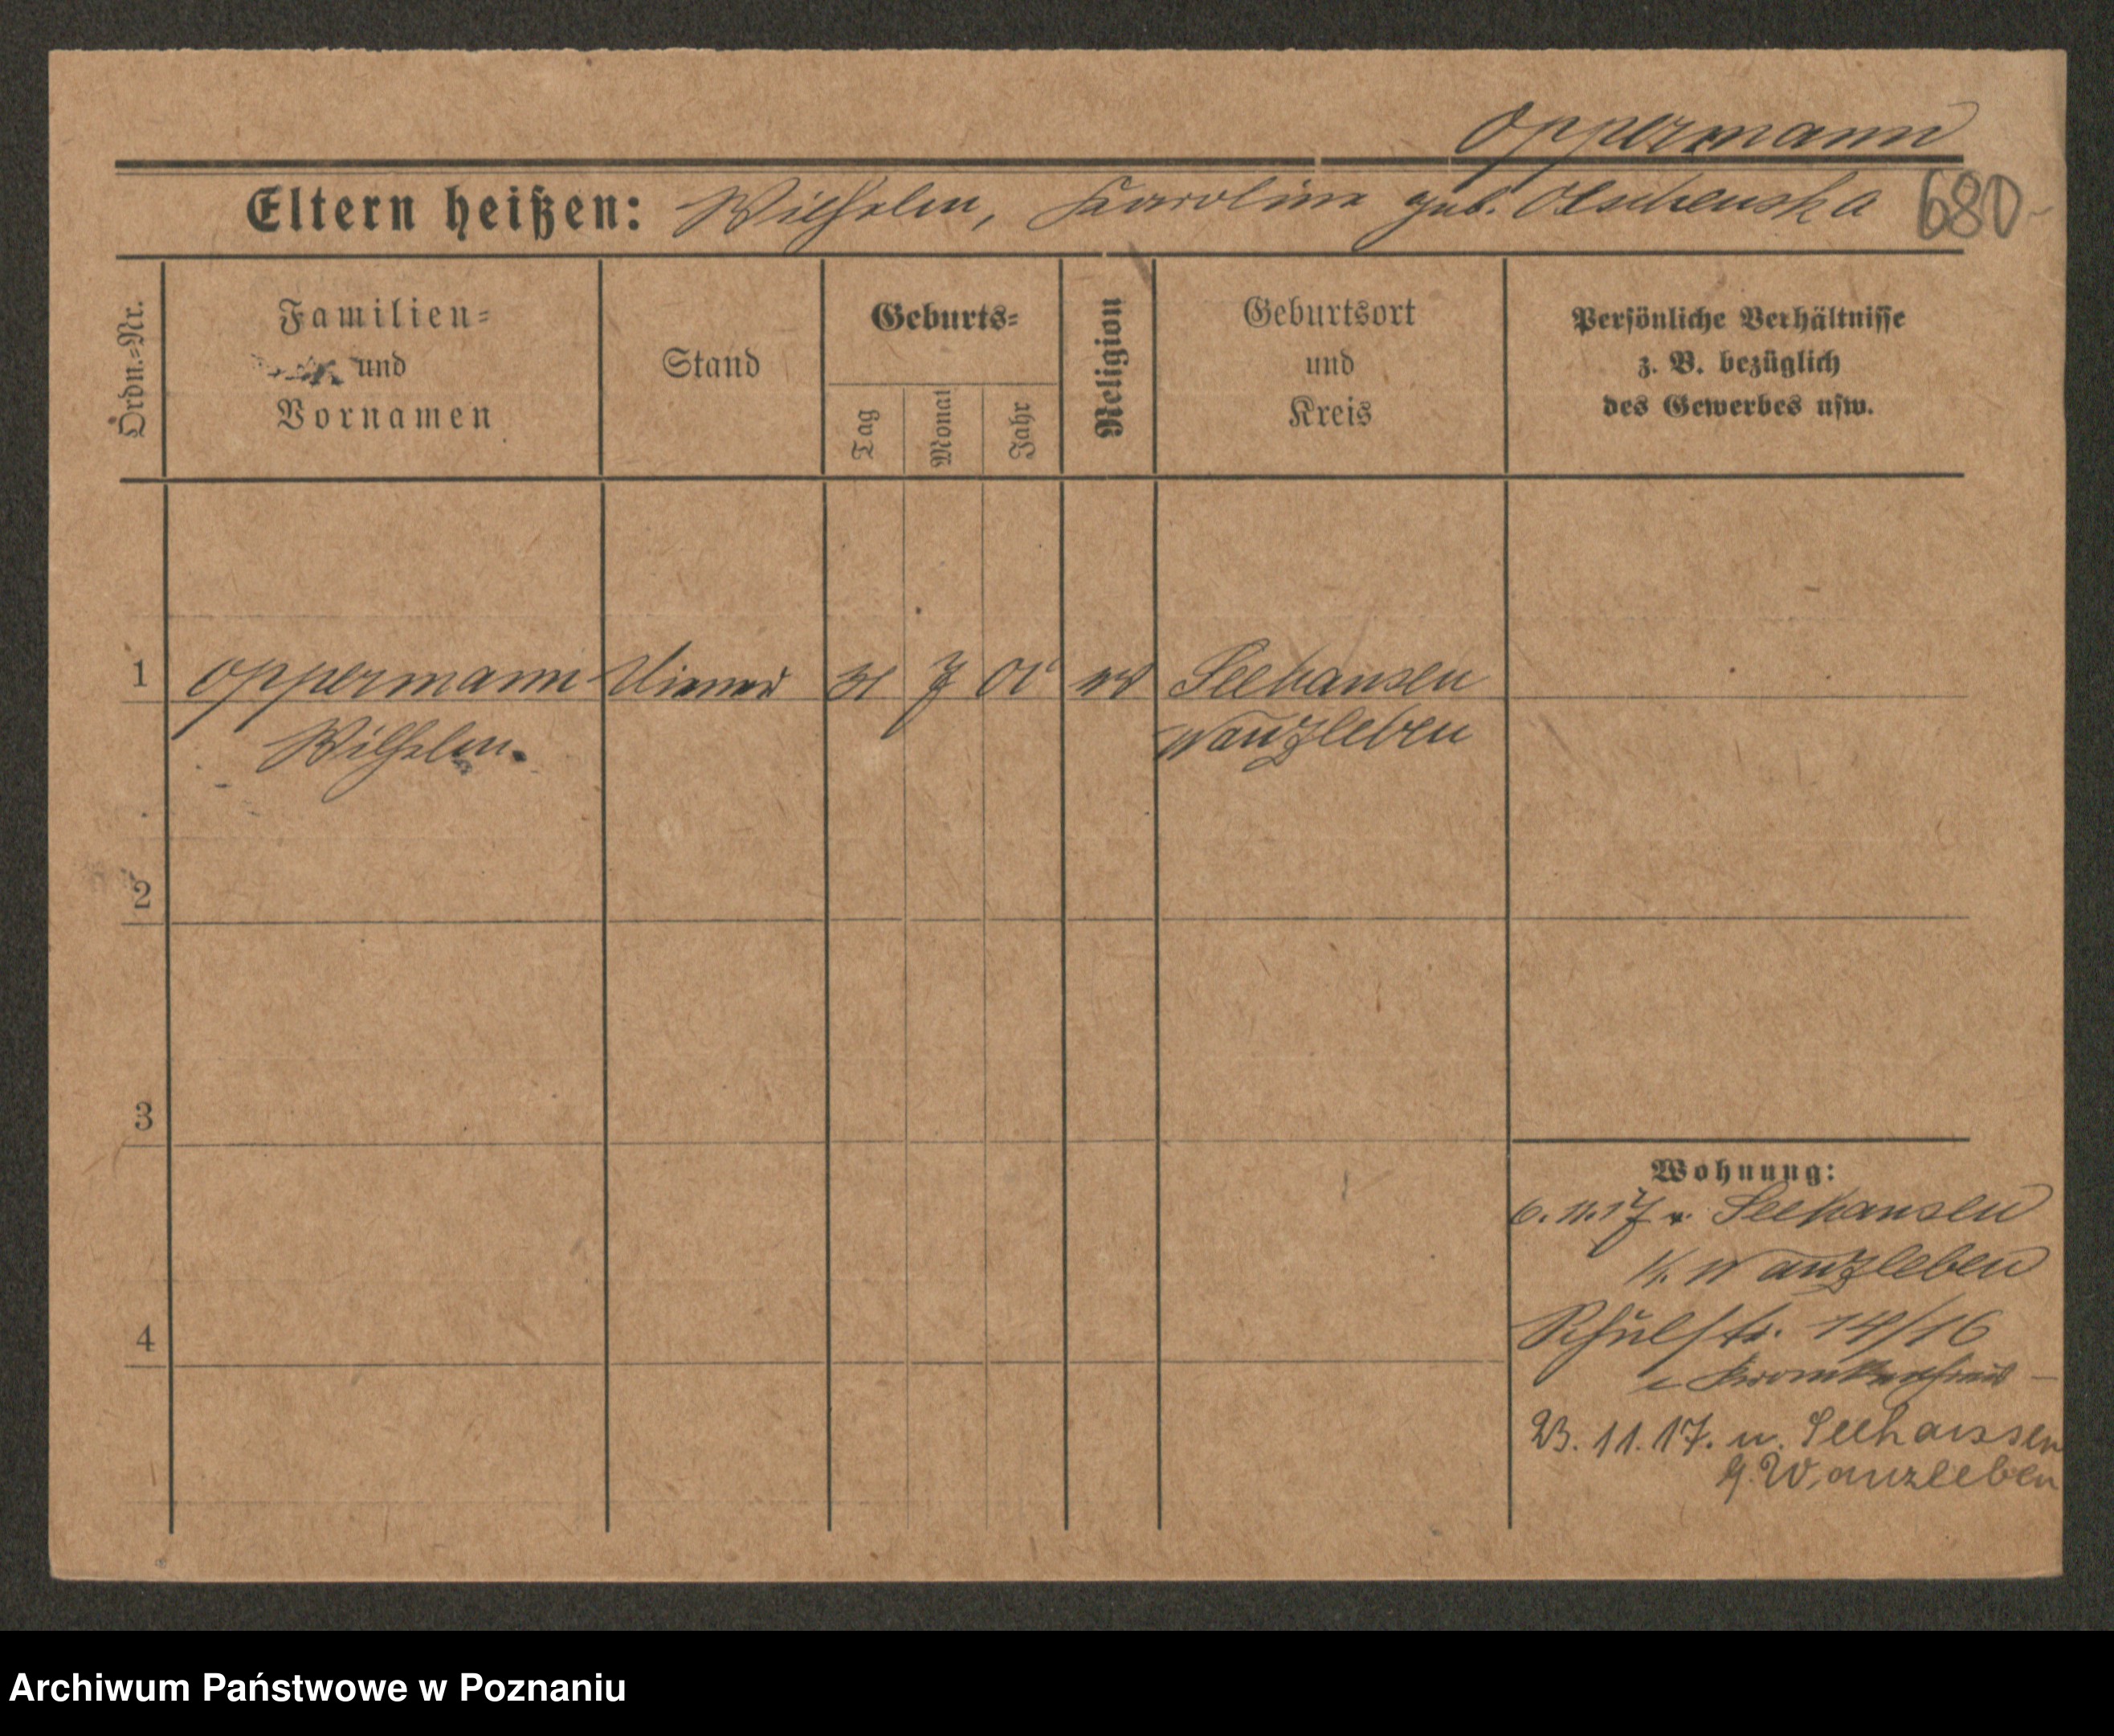 Oppermann
Eltern heißen: Wilhelm, Karoline geb. Olschenska 680
Ordn.=Nr.
Familien=
und
Vornamen
Stand
Geburts=
Tag
Monat
Jahr
Religion
Geburtsort
und
Kreis
Persönliche Verhältnisse
z. B. bezüglich
des Gewerbes usw.
1 Oppermann Diener 31 7 01 ev Seehausen
Wilhelm. Wanzleben
2
3
4
Wohnung:
6. 11. 17 v. Seehausen
K. Wanzleben
Schulstr. 14/16
Krankenhaus
23. 11. 17. n. Seehaussen
Wanzleben
Archiwum Państwowe w Poznaniu